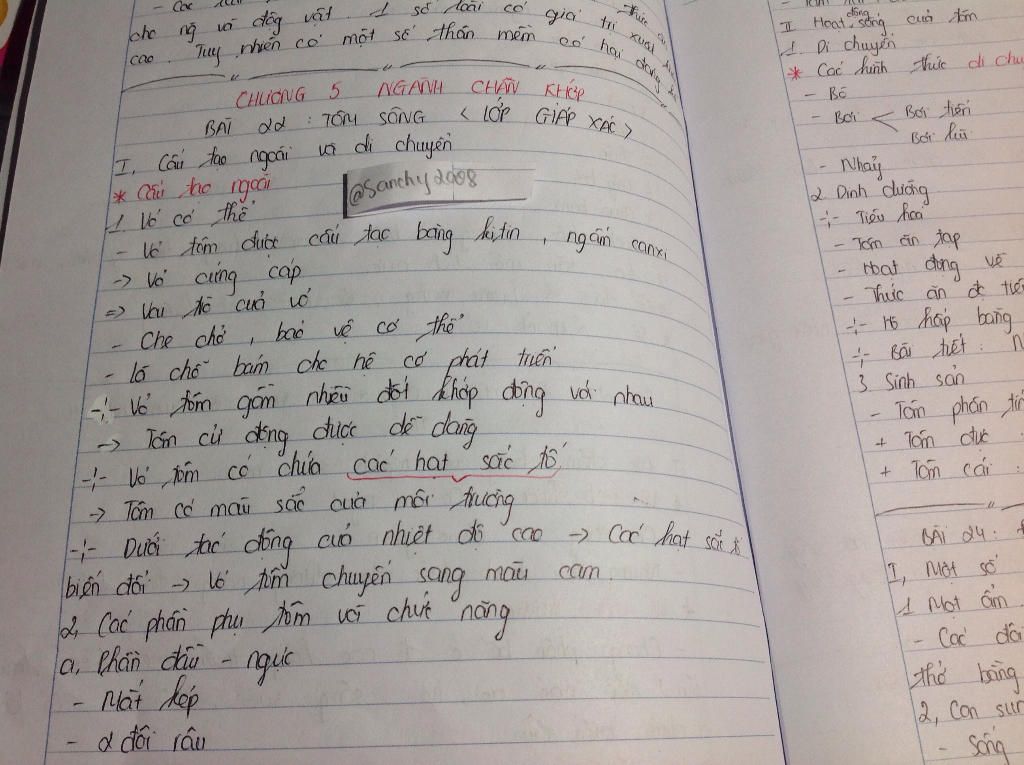 - Các
cho ng và động vật. 1 số loài có giá trị xuất
cao. Tuy nhiên có một số thân mềm có hại
CHƯƠNG 5 NGÀNH CHÂN KHỚP
BÀI 22: TÔM SÔNG < LỚP GIÁP XÁC >
I, Cấu tạo ngoài và di chuyển
* Cấu tạo ngoài
@Sanchy2008
1 Vỏ cơ thể
- Vỏ tôm được cấu tạo bằng kitin, ngấm canxi
-> Vỏ cứng cáp
=> Vai trò của vỏ
- Che chở, bảo vệ cơ thể
- là chỗ bám cho hệ cơ phát triển
-:- Vỏ tôm gồm nhiều đốt khớp động với nhau
-> Tôm cử động được dễ dàng
-:- Vỏ tôm có chứa các hạt sắc tố
-> Tôm có màu sắc của môi trường
-:- Dưới tác động của nhiệt độ cao -> Các hạt sắc tố
biến đổi -> Vỏ tôm chuyển sang màu cam.
2, Các phần phụ tôm với chức năng
a, Phần đầu - ngực
- Mắt kép
- 2 đôi râu
II Hoạt động sống của tôm
1. Di chuyển
* Các hình thức di chu
- Bò
- Bơi < Bơi tiến
Bơi lùi
- Nhảy
2 Dinh dưỡng
-:- Tiêu hoá
- Tôm ăn tạp
- Hoạt động về
- Thức ăn đc tiê
-:- Hô hấp bằng
-:- Bài tiết:
3 Sinh sản
- Tôm phân tí
+ Tôm đực :
+ Tôm cái :
BÀI 24:
I, Một số
1 Mọt ẩm
- Các đôi
thở bằng
2, Con sun
- Sống